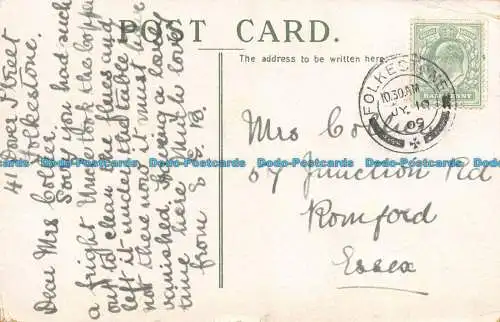 POST CARD.
The address to be written here.
4 Dover Street
Folkestone.
Dear Mrs Collier.
Sorry you had such
a fright Uncle took the copper
out to clean the flues and
left it under the table if
not there now it must have
vanished. Am having a lovely
time here such lovely
from S E B.
Mrs Co
57 Junction Rd
Romford
Essex
FOLKESTONE
10.30 AM
JY 10
09
HALFPENNY
Dodo-Postcards Dodo-Postcards Dodo-Postcards Dodo-Postcards